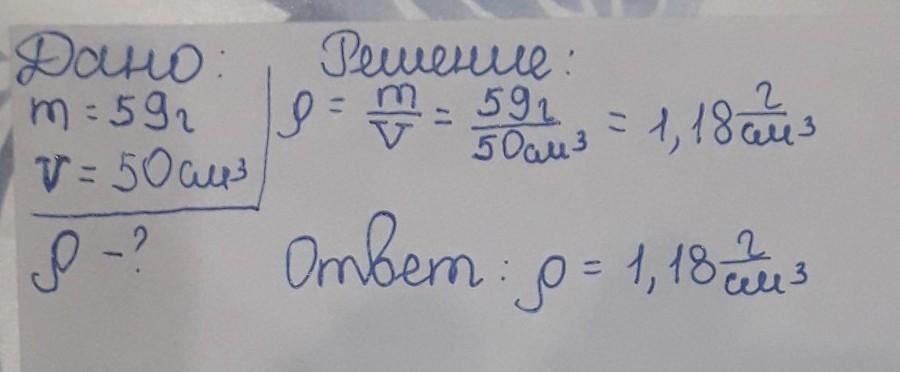 Дано:
m = 59г
V = 50см³
ρ - ?
Решение:
ρ = m/V = 59г/50см³ = 1,18 г/см³
Ответ: ρ = 1,18 г/см³